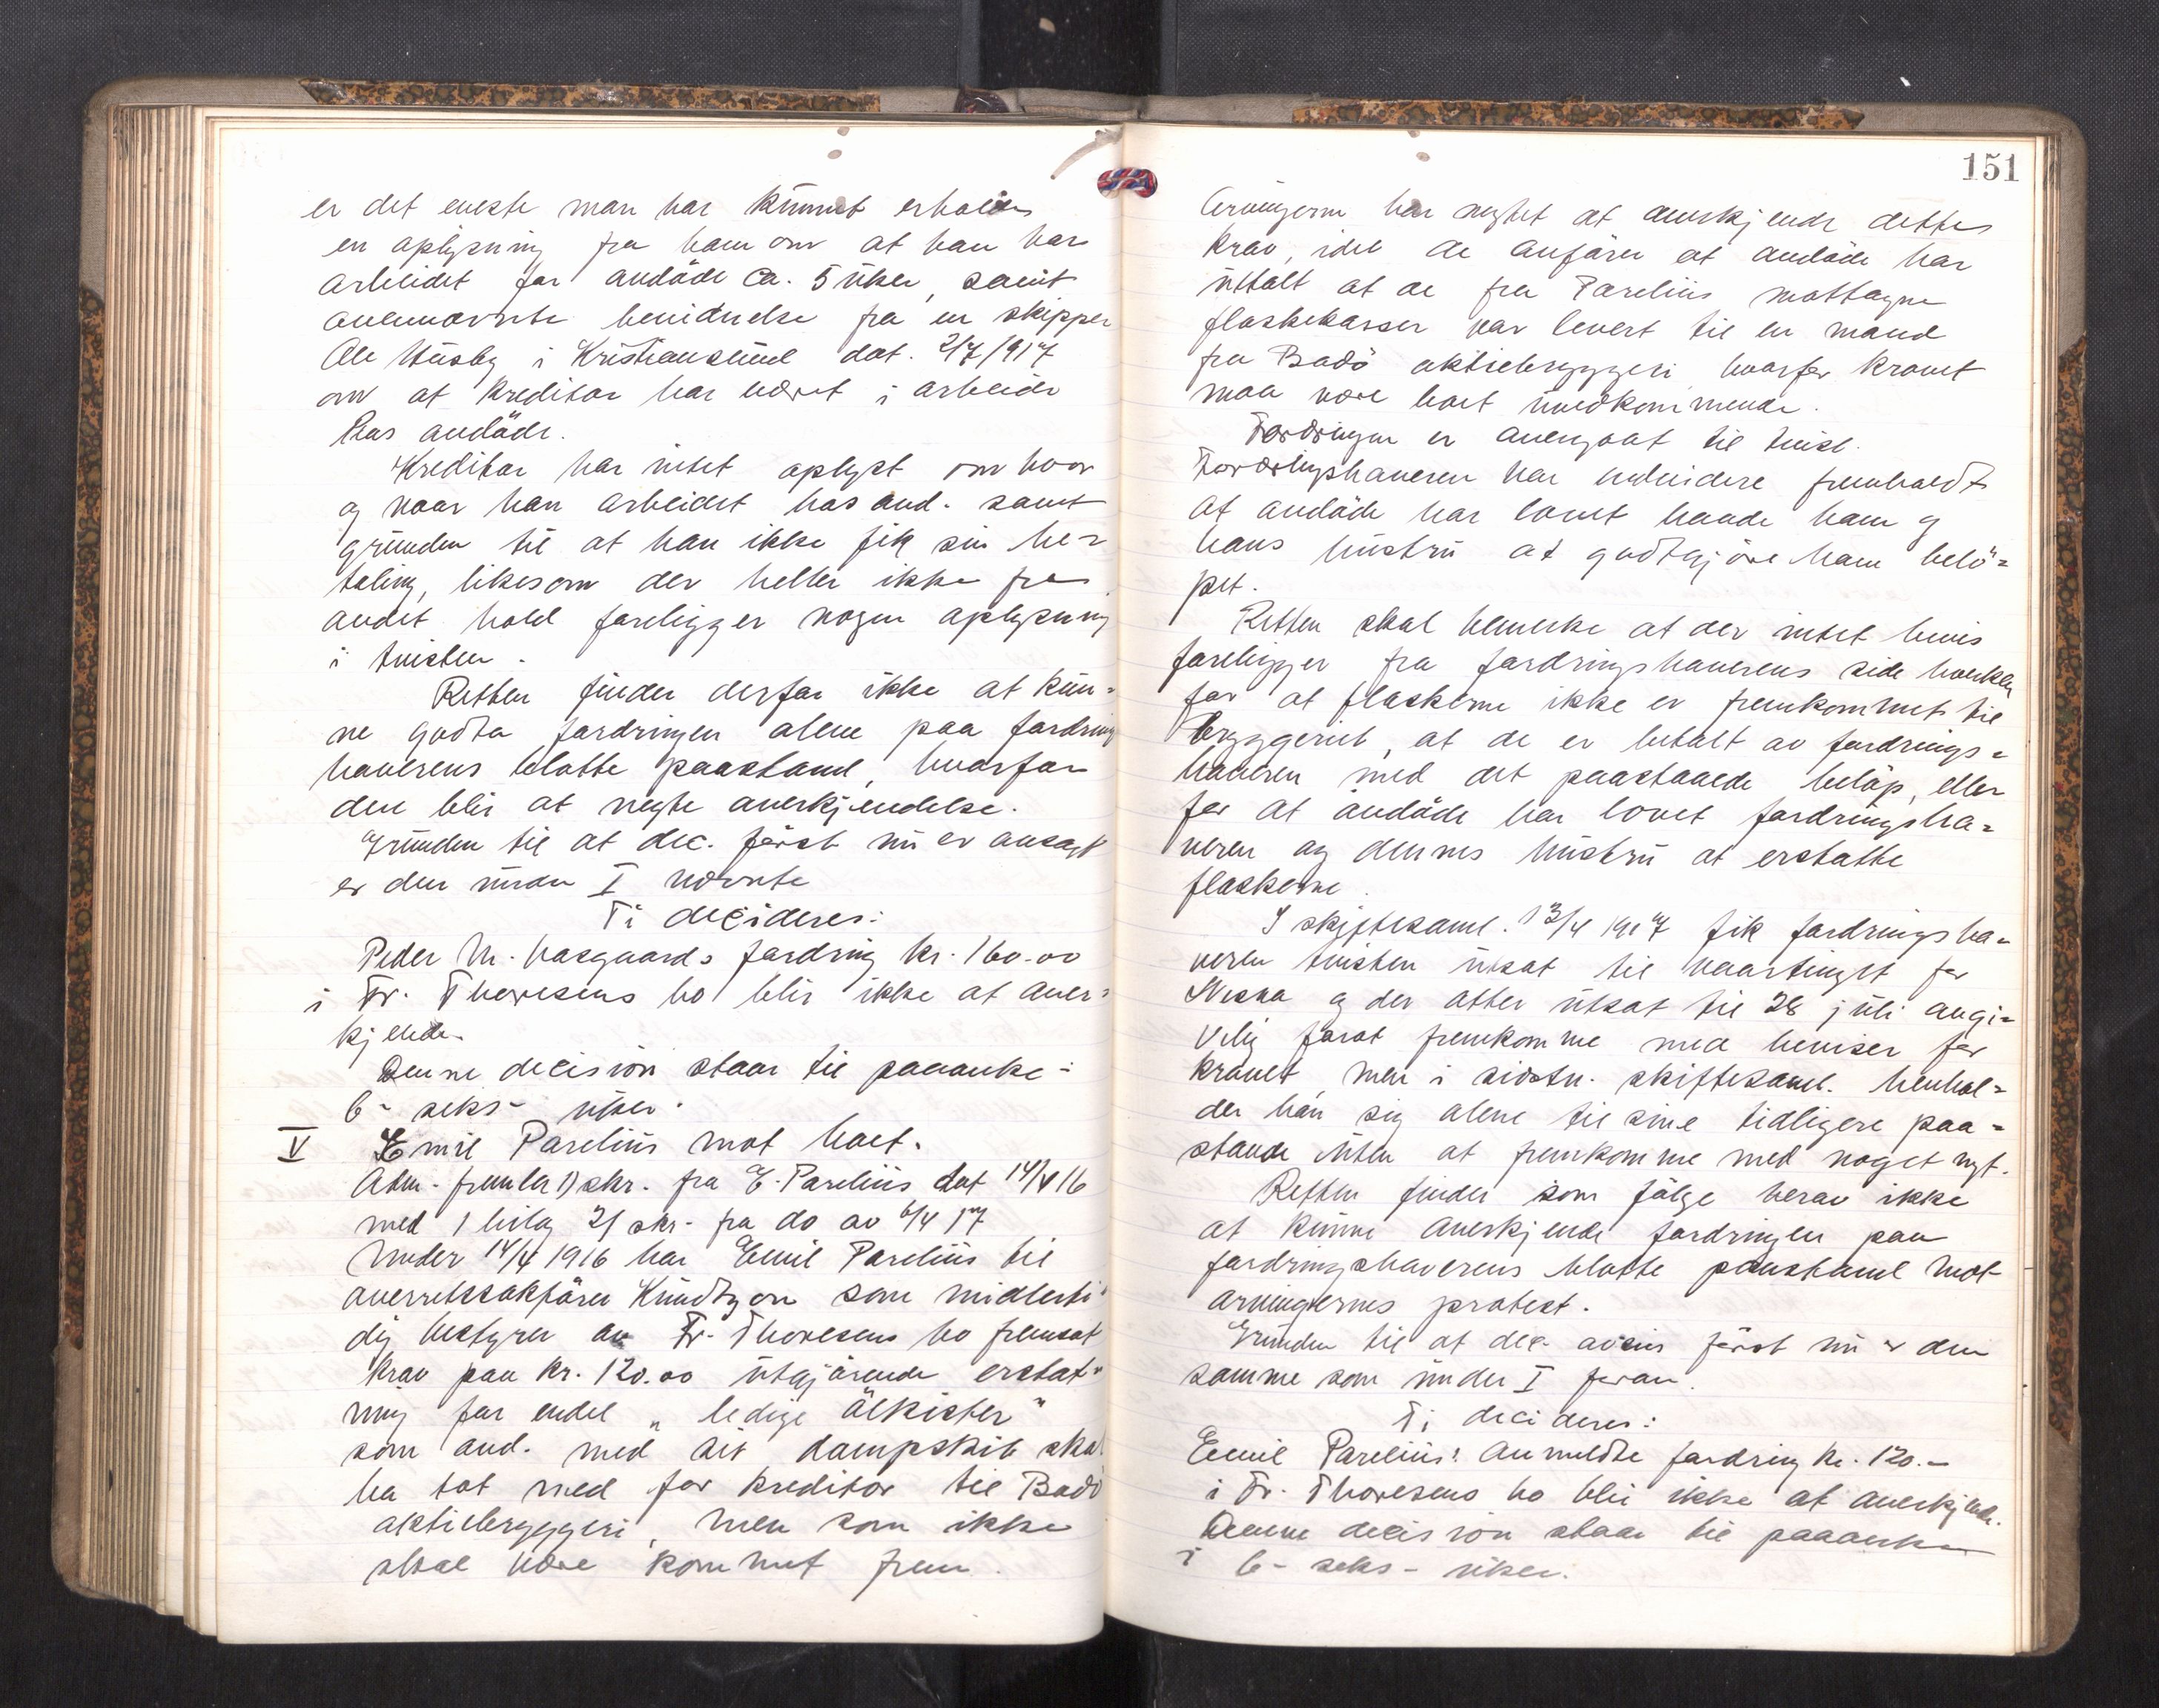 er det eneste man har kunnet erholde
en oplysning fra ham om at han har
arbeidet for avdöde ca. 5 uker, samt
ovennævnte bevidnelse fra en skipper
Ole Husby i Kristiansund dat. 2/7 1917
om at kreditor har været i arbeide
hos avdöde.
Kreditor har intet oplyst om hvor
og naar han arbeidet hos avd. samt
grunden til at han ikke fik sin be=
taling, likesom der heller ikke fra
andet hold foreligger nogen oplysning
i tvisten.
Retten finder derfor ikke at kun=
ne godta fordringen alene paa fordrings
haverens blotte paastand, hvorfor
den blir at negte anerkjendelse.
Grunden til at dec. först nu er avsagt
er den under I nævnte
Ti decideres:
Peder M. Hasgaards fordring kr. 160.00
i Fr. Thoresens bo blir ikke at aner=
kjende.
Denne decision staar til paaanke i
6 - seks - uker.
V Emil Parelius mot boet.
Adm. fremla 1) skr. fra E. Parelius dat 14/4 16
med 1 bilag 2) skr. fra do av 6/4 17
Under 14/4 1916 har Emil Parelius til
overretssakförer Knudtzon som midlerti=
dig bestyrer av Fr. Thoresens bo fremsat
krav paa kr. 120.00 utgjörende erstat=
ning for endel "ledige ölkister"
som avd. med sit dampskib skal
ha tat med for kreditor til Bodö
aktiebryggeri, men som ikke
skal være kommet frem.
151
Arvingerne har negtet at anerkjende dette
krav, idet de anförer at avdöde har
uttalt at de fra Parelius mottagne
flaskekasser var levert til en mand
fra Bodö aktiebryggeri hvorfor kravet
maa være boet uvedkommende.
Fordringen er overgaat til tvist.
Fordringshaveren har endvidere fremholdt
at avdöde har lovet baade ham og
hans hustru at godtgjöre ham belö=
pet.
Retten skal bemerke at der intet bevis
foreligger fra fordringshaverens side hverken
for at flaskerne ikke er fremkommet til
bryggeriet, at de er betalt av fordrings=
haveren med det paastaaede belöp, eller
for at avdöde har lovet fordringsha=
veren og dennes hustru at erstatte
flaskerne.
I skiftesaml. 13/4 1917 fik fordringsha=
veren tvisten utsat til vaartinget for
Nesna og der atter utsat til 28 juli angi=
velig forat fremkomme med beviser for
kravet men i sidstn. skiftesaml. henhol=
der han sig alene til sine tidligere paa=
stande uten at fremkomme med noget nyt.
Retten finder som fölge herav ikke
at kunne anerkjende fordringen paa
fordringshaverens blotte paastand mot
arvingernes protest.
Grunden til at dec. avsies först nu er den
samme som under I foran.
Ti decideres:
Emil Parelius' anmeldte fordring kr. 120.-
i Fr. Thoresens bo blir ikke at anerkjende.
Denne decision staar til paaanke
i 6 - seks - uker.